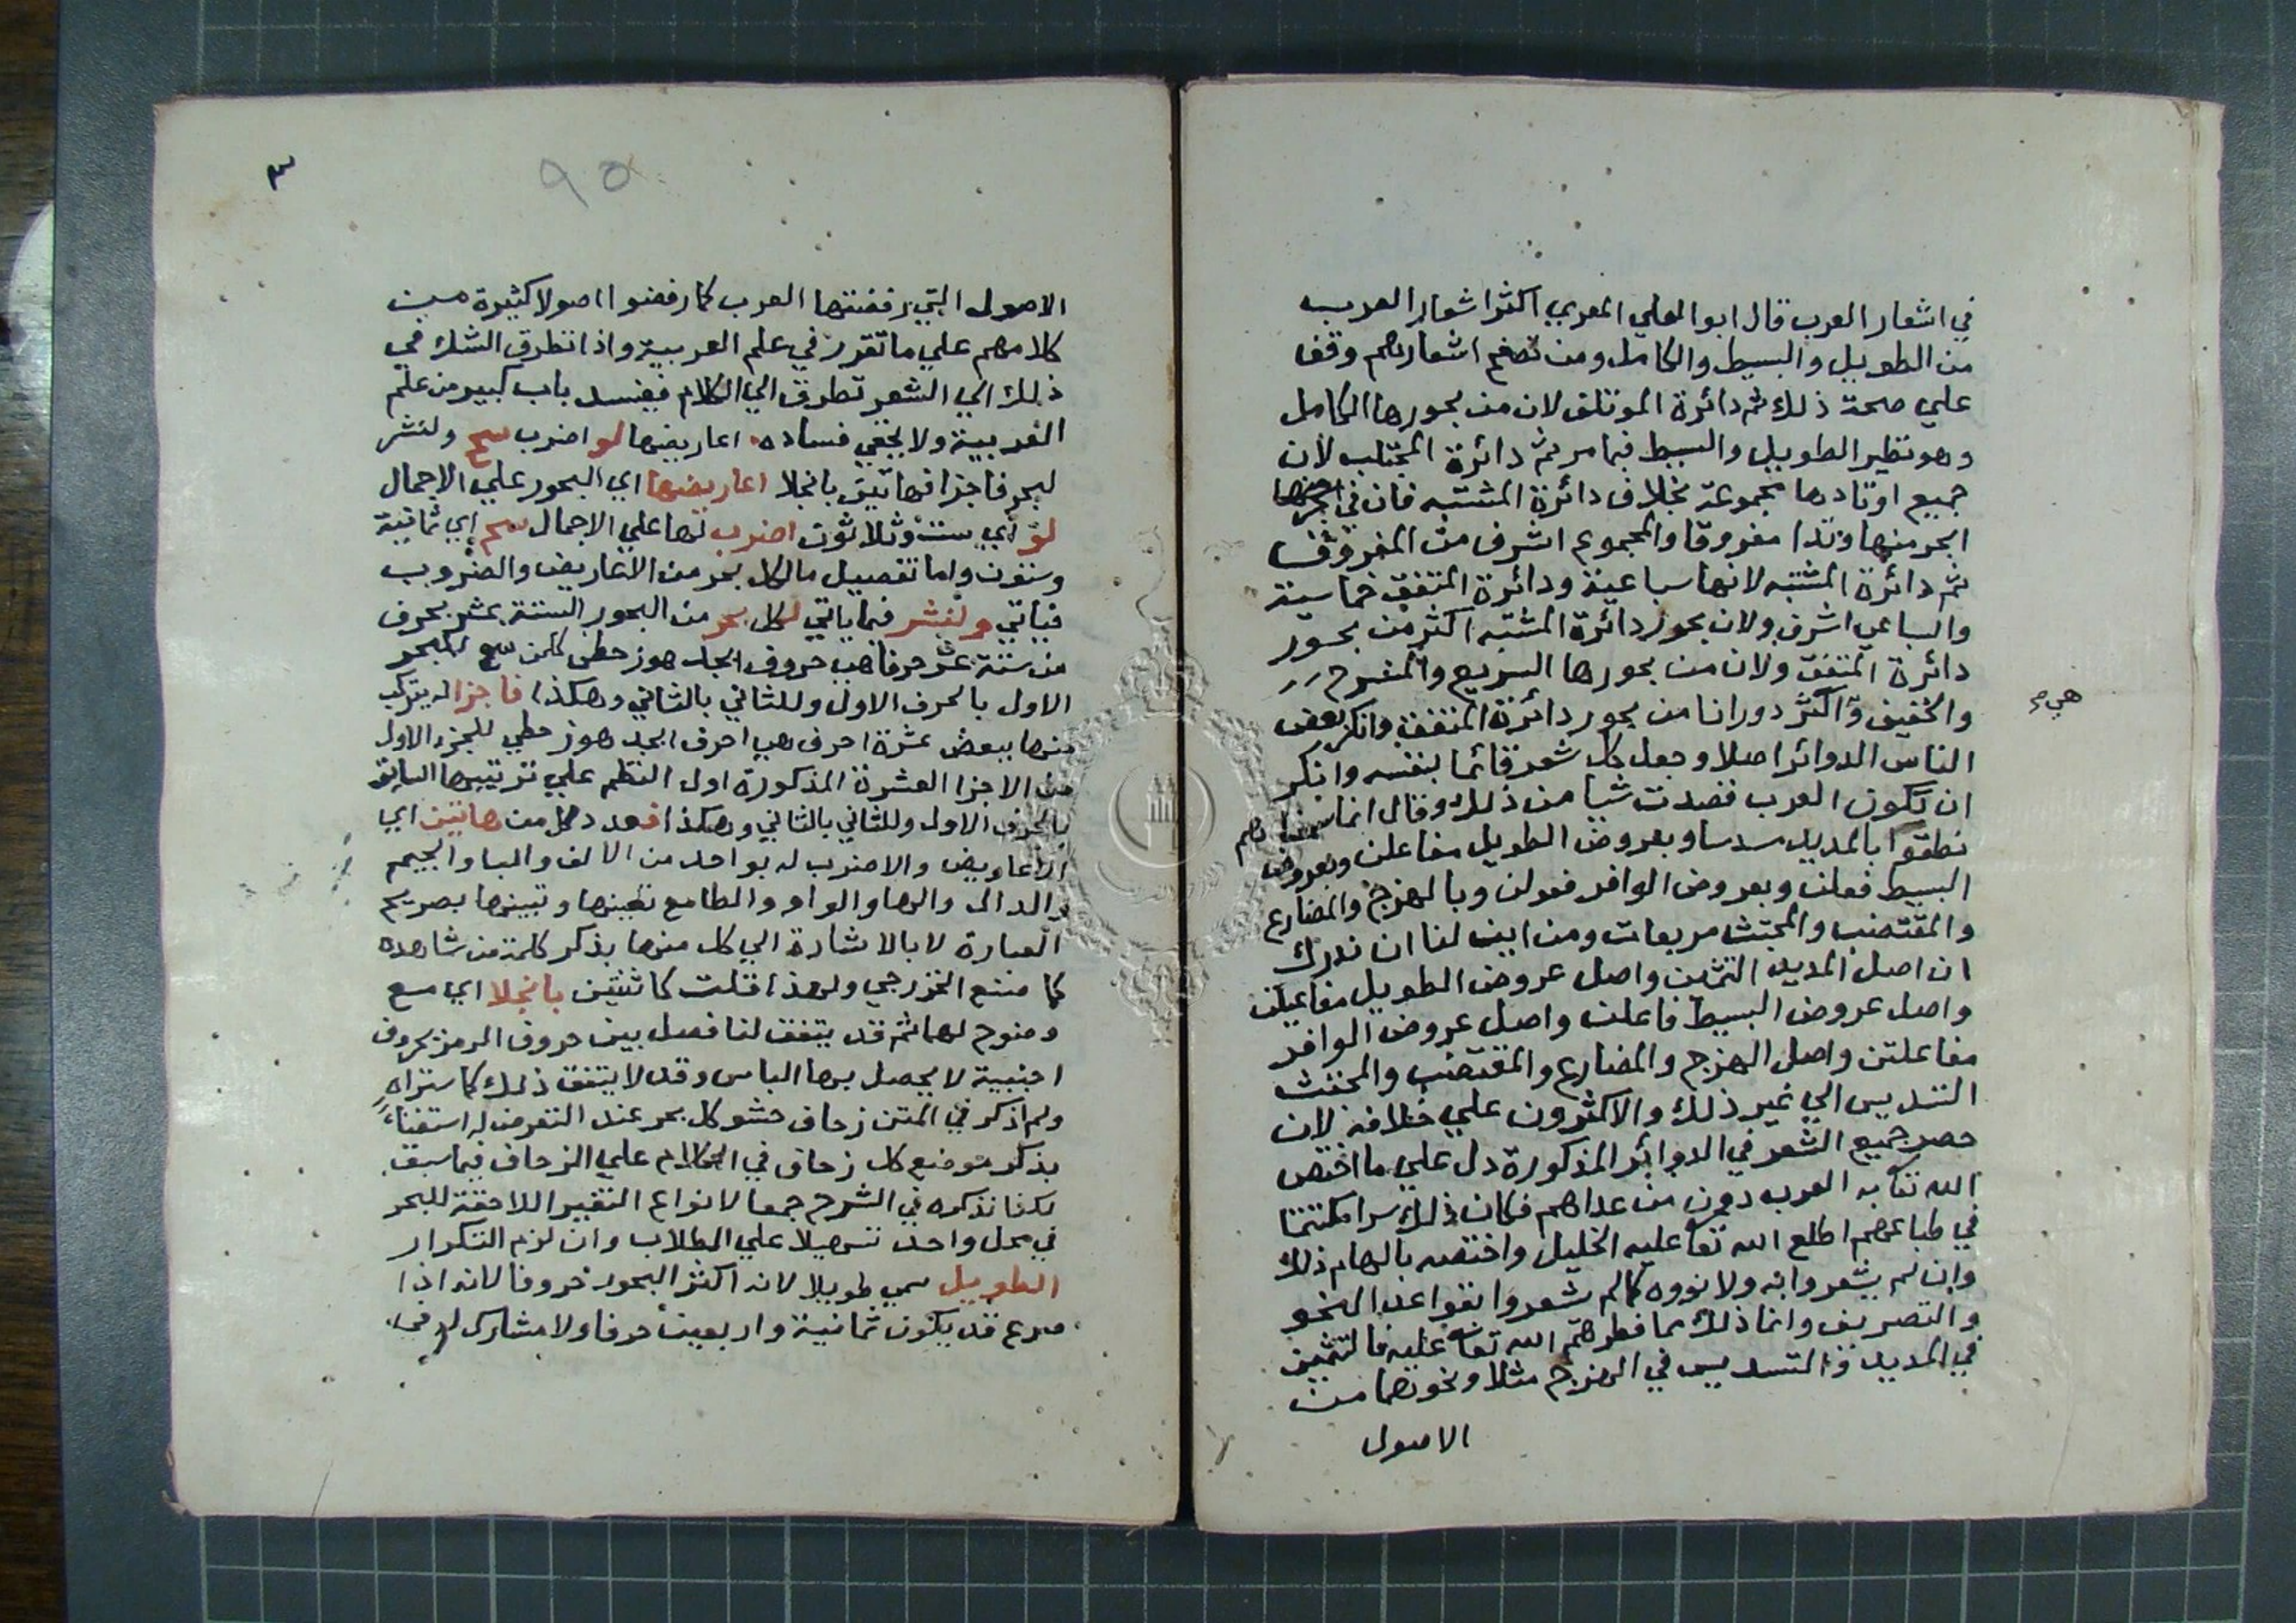 في اشعار العرب قال ابو العلي المعري اكثر اشعار العرب
من الطويل والبسيط والكامل ومن تصفح اشعارهم وقف
علي صحة ذلك ثم دائرة الموتلف لان من بحورها الكامل
وهو نظير الطويل والبسيط فيما مر ثم دائرة المجتلب لان
جميع اوتادها مجموعة بخلاف دائرة المشتبه فان في
ابحر منها وتدا مفروقا والمجموع اشرف من المفروق
ثم دائرة المشتبه لانها سباعية ودائرة المتفق خماسية
والسباعي اشرف ولان بحور دائرة المشتبه اكثر من بحور
دائرة المتفق ولان من بحورها السريع والمنسرح
والخفيف واكثر دورانا من بحور دائرة المتفق وانكر بعض
هي م
الناس الدوائر اصلا وجعل كل شعر قائما بنفسه وانكر
ان تكون العرب قصدت شيا من ذلك وقال انما سمعناهم
نطقوا بالمديد مسدسا وبعروض الطويل مفاعلن وبعروض
البسيط فعلن وبعروض الوافر فعولن وبالهزج والمضارع
والمقتضب والمجتث مربعات ومن اين لنا ان ندرك
ان اصل المديد التثمين واصل عروض الطويل مفاعيلن
واصل عروض البسيط فاعلن واصل عروض الوافر
مفاعلتن واصل الهزج والمضارع والمقتضب والمجتث
التسديس الي غير ذلك والاكثرون علي خلافه لان
حصر جميع الشعر في الدوائر المذكورة دل علي ما اختص
الله تعا به العرب دون من عداهم فكان ذلك سرا مكتتما
في طباعهم اطلع الله تعا عليه الخليل واختصه بالهام ذلك
وان لم يشعروا به ولا نووه كما لم يشعروا بقواعد النحو
والتصريف وانما ذلك مما فطرهم الله تعا عليه فالتثمين
في المديد والتسديس في الهزج مثلا ونحوهما من
الاصول
٣
٩٥
الاصول التي رفضتها العرب كما رفضوا اصولا كثيرة من
كلامهم علي ما تقرر في علم العربية واذا تطرق الشك في
ذلك الي الشعر تطرق الي الكلام فيفسد باب كبير من علم
العربية ولا يخفي فساده اعاريضها لو اضرب سح ولنشر
لبحر فاجزا فهاتين بانجلا اعاريضها اي البحور علي الاجمال
لو اي ست وثلاثون اضرب لها علي الاجمال سح اي ثمانية
وستون واما تفصيل ما لكل بحر من الاعاريض والضروب
فياتي ولنشر فيما ياتي لكل بحر من البحور الستة عشر بحرف
من ستة عشر حرفا هي حروف ابجد هوز حطي كلمن سع للبحر
الاول بالحرف الاول وللثاني بالثاني وهكذا فاجزا له يتركب
منها ببعض عشرة احرف هي احرف ابجد هوز حطي للجزء الاول
من الاجزا العشرة المذكورة اول النظم علي ترتيبها السابق
بالحرف الاول وللثاني بالثاني وهكذا فعدد كل من هاتين اي
الاعاريض والاضرب له بواحد من الالف والبا والجيم
والدال والها والواو والطا مع تعيينها وتبيينها بصريح
العبارة لا بالاشارة الي كل منها بذكر كلمة من شاهده
كما صنع الخزرجي ولهذا قلت كائنتين بانجلا اي مع
وضوح لهما ثم قد يتفق لنا فصل بين حروف الرمز بحروف
اجنبية لا يحصل بها الباس وقد لا يتفق ذلك كما ستراه
ولم اذكر في المتن زحاف حشو كل بحر عند التعرض له استغناء
بذكر موضع كل زحاف في الكلام علي الزحاف فيما سبق
لكنا نذكره في الشرح جمعا لانواع التغيير اللاحقة للبحر
في محل واحد تسهيلا علي الطلاب وان لزم التكرار
الطويل سمي طويلا لانه اكثر البحور حروفا لانه اذا
صرع قد يكون ثمانية واربعين حرفا ولا مشارك له في